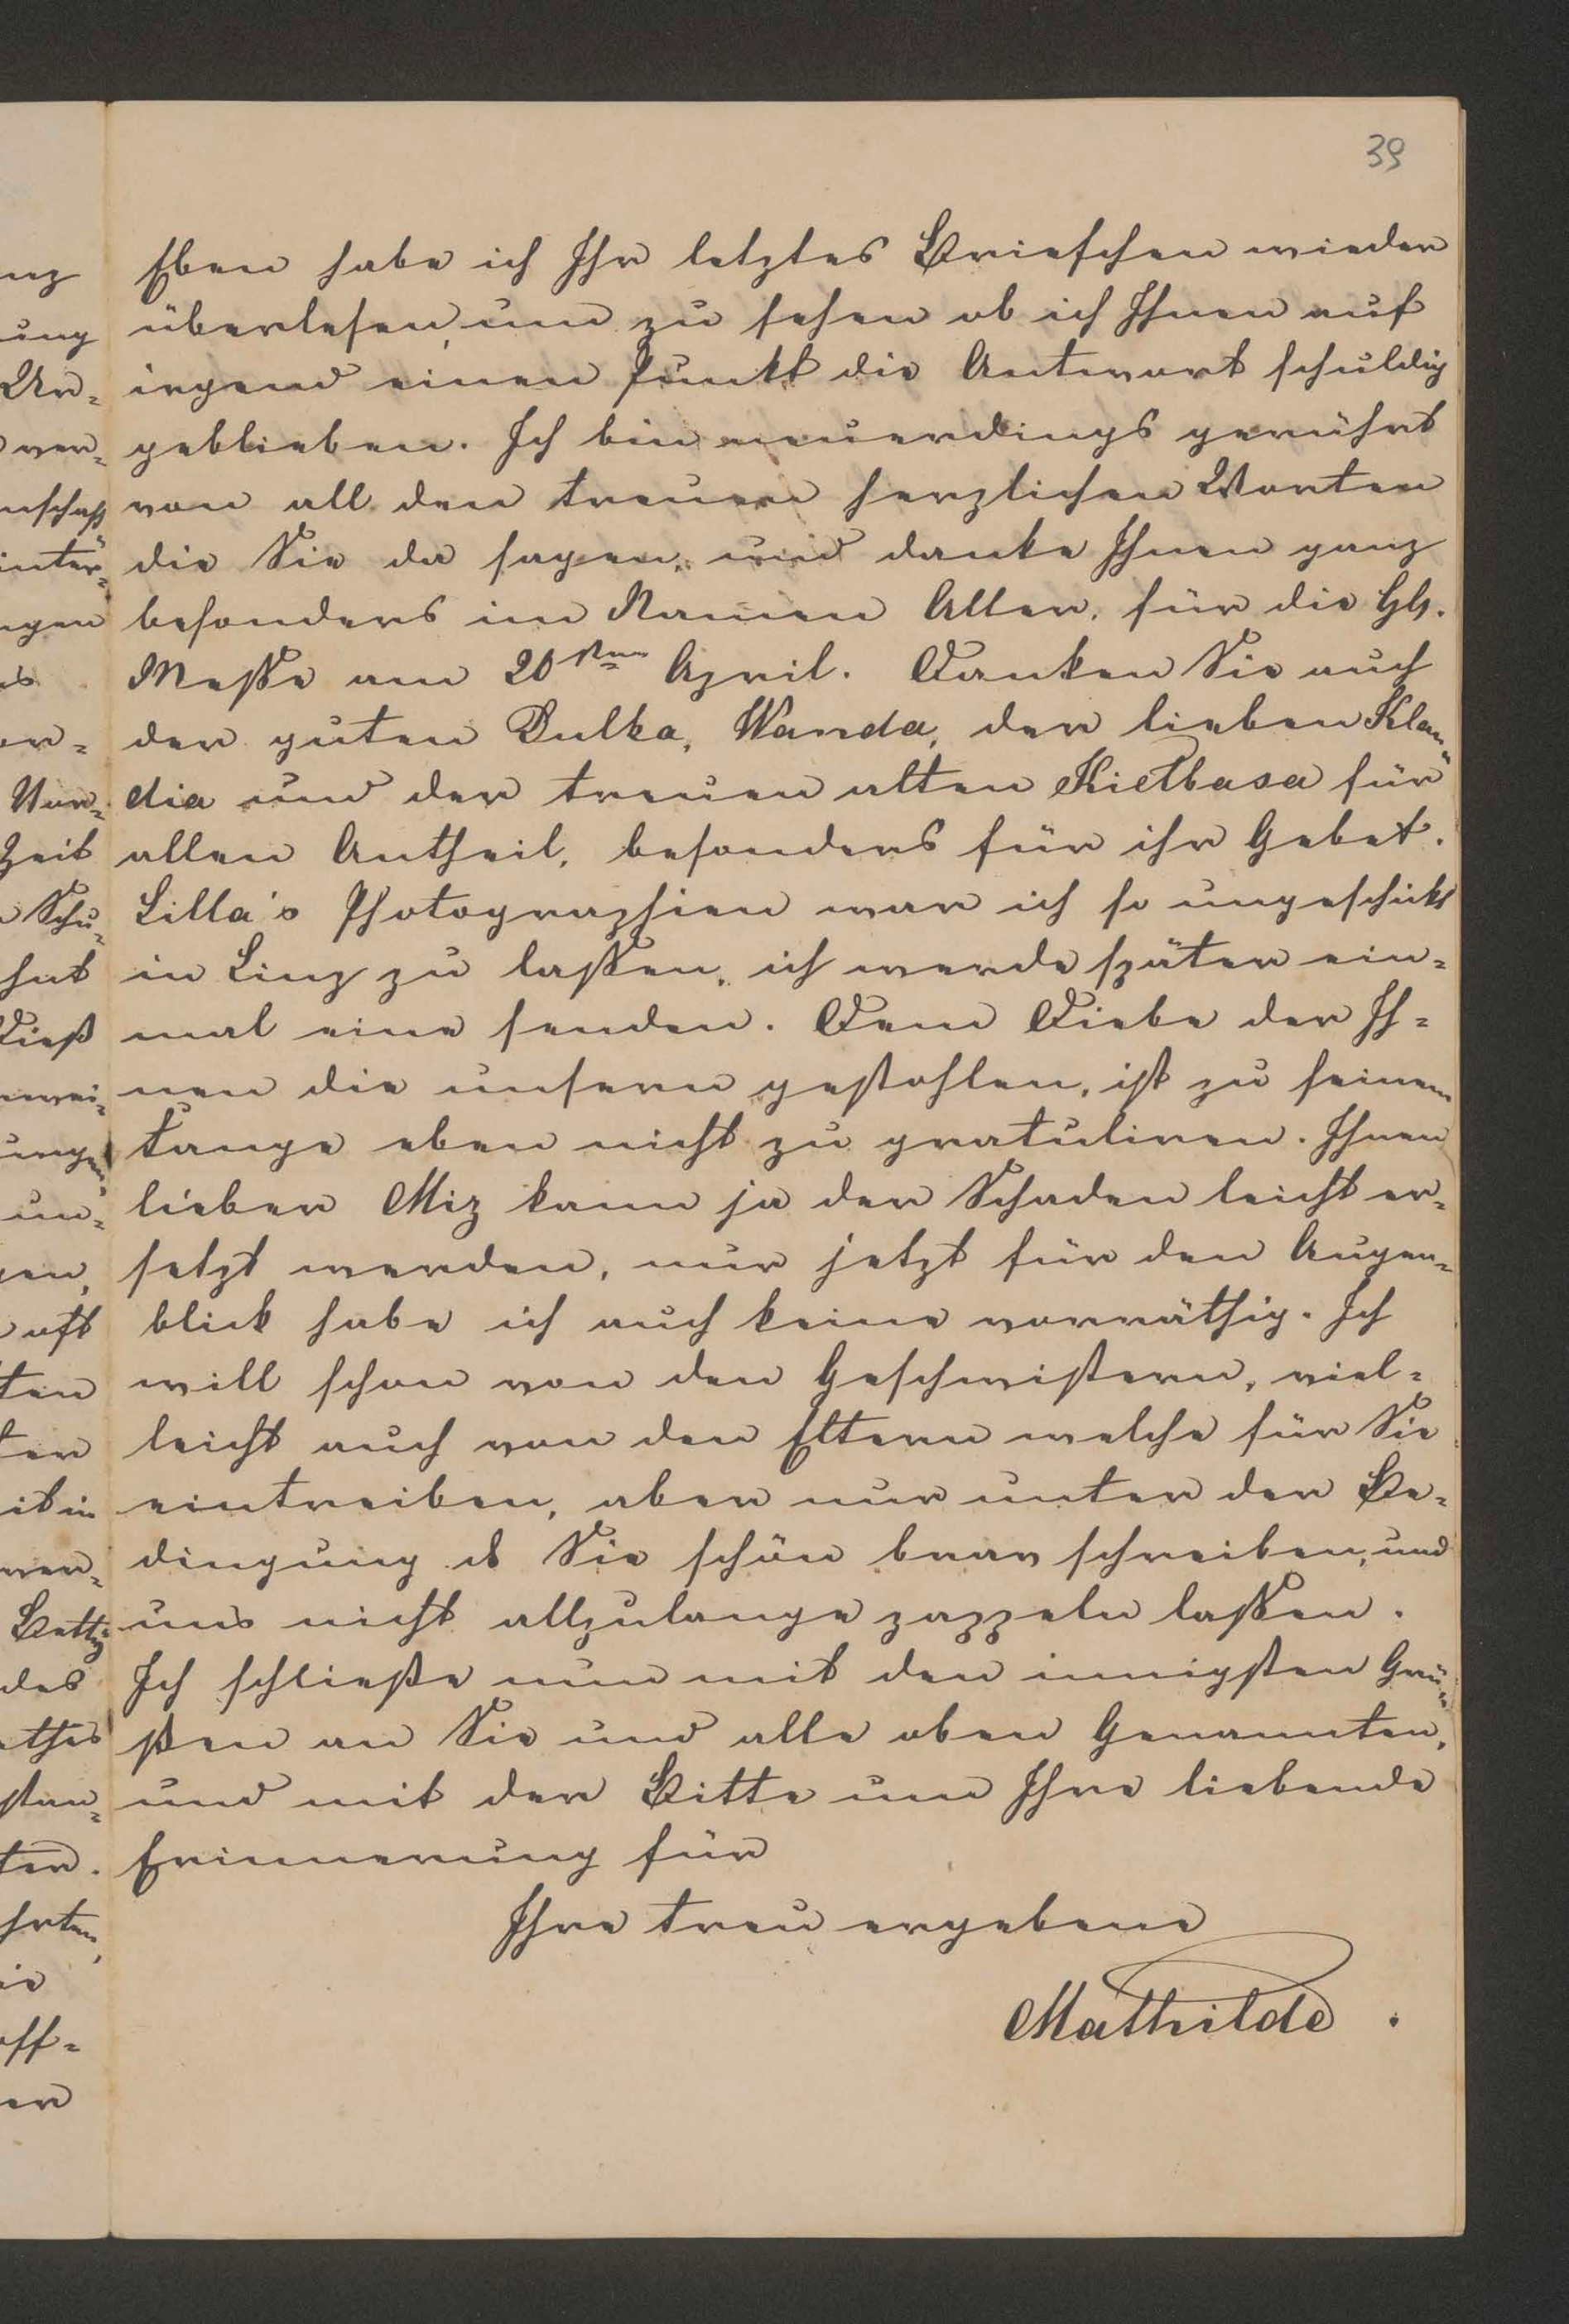 39
Eben habe ich Ihr letztes Briefchen wieder
überlesen, um zu sehen ob ich Ihnen auf
irgend einen Punkt die Antwort schuldig
geblieben. Ich bin neuerdings gerührt
von all den treuen herzlichen Worten
die Sie da sagen, und danke Ihnen ganz
besonders im Namen Aller, für die Hl.
Messe am 20sten April. Danken Sie auch
der guten Bulka, Wanda, der lieben Klau=
dia und der treuen alten Kiełbasa für
allen Antheil, besonders für ihr Gebet.
Lilla's Photographien war ich so ungeschickt
in Linz zu lassen, ich werde später ein=
mal eine senden. Dem Diebe der Ih=
nen die unsern gestohlen, ist zu seinem
Fange eben nicht zu gratuliren. Ihnen
lieber Miz kann ja der Schaden leicht er=
setzt werden, nur jetzt für den Augen=
blick habe ich auch keine vorräthig. Ich
will schon von den Geschwistern, viel=
leicht auch von den Eltern welche für Sie
eintreiben, aber nur unter der Be=
dingung ds Sie schön brav schreiben, und
uns nicht allzulange zappeln lassen.
Ich schließe nun mit den innigsten Grü=
ßen an Sie und alle oben Genannten,
und mit der Bitte um Ihre liebende
Erinnerung für
Ihre treu ergebene
Mathilde.